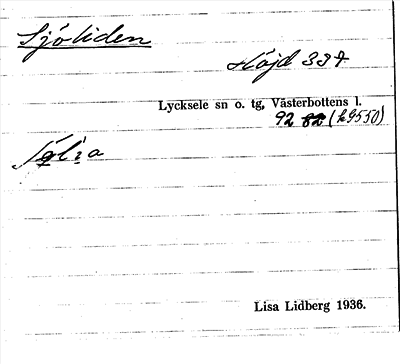 Sjöliden
Höjd 334
Lycksele sn o. tg, Västerbottens l.
92 (k9550)
Lisa Lidberg 1936.